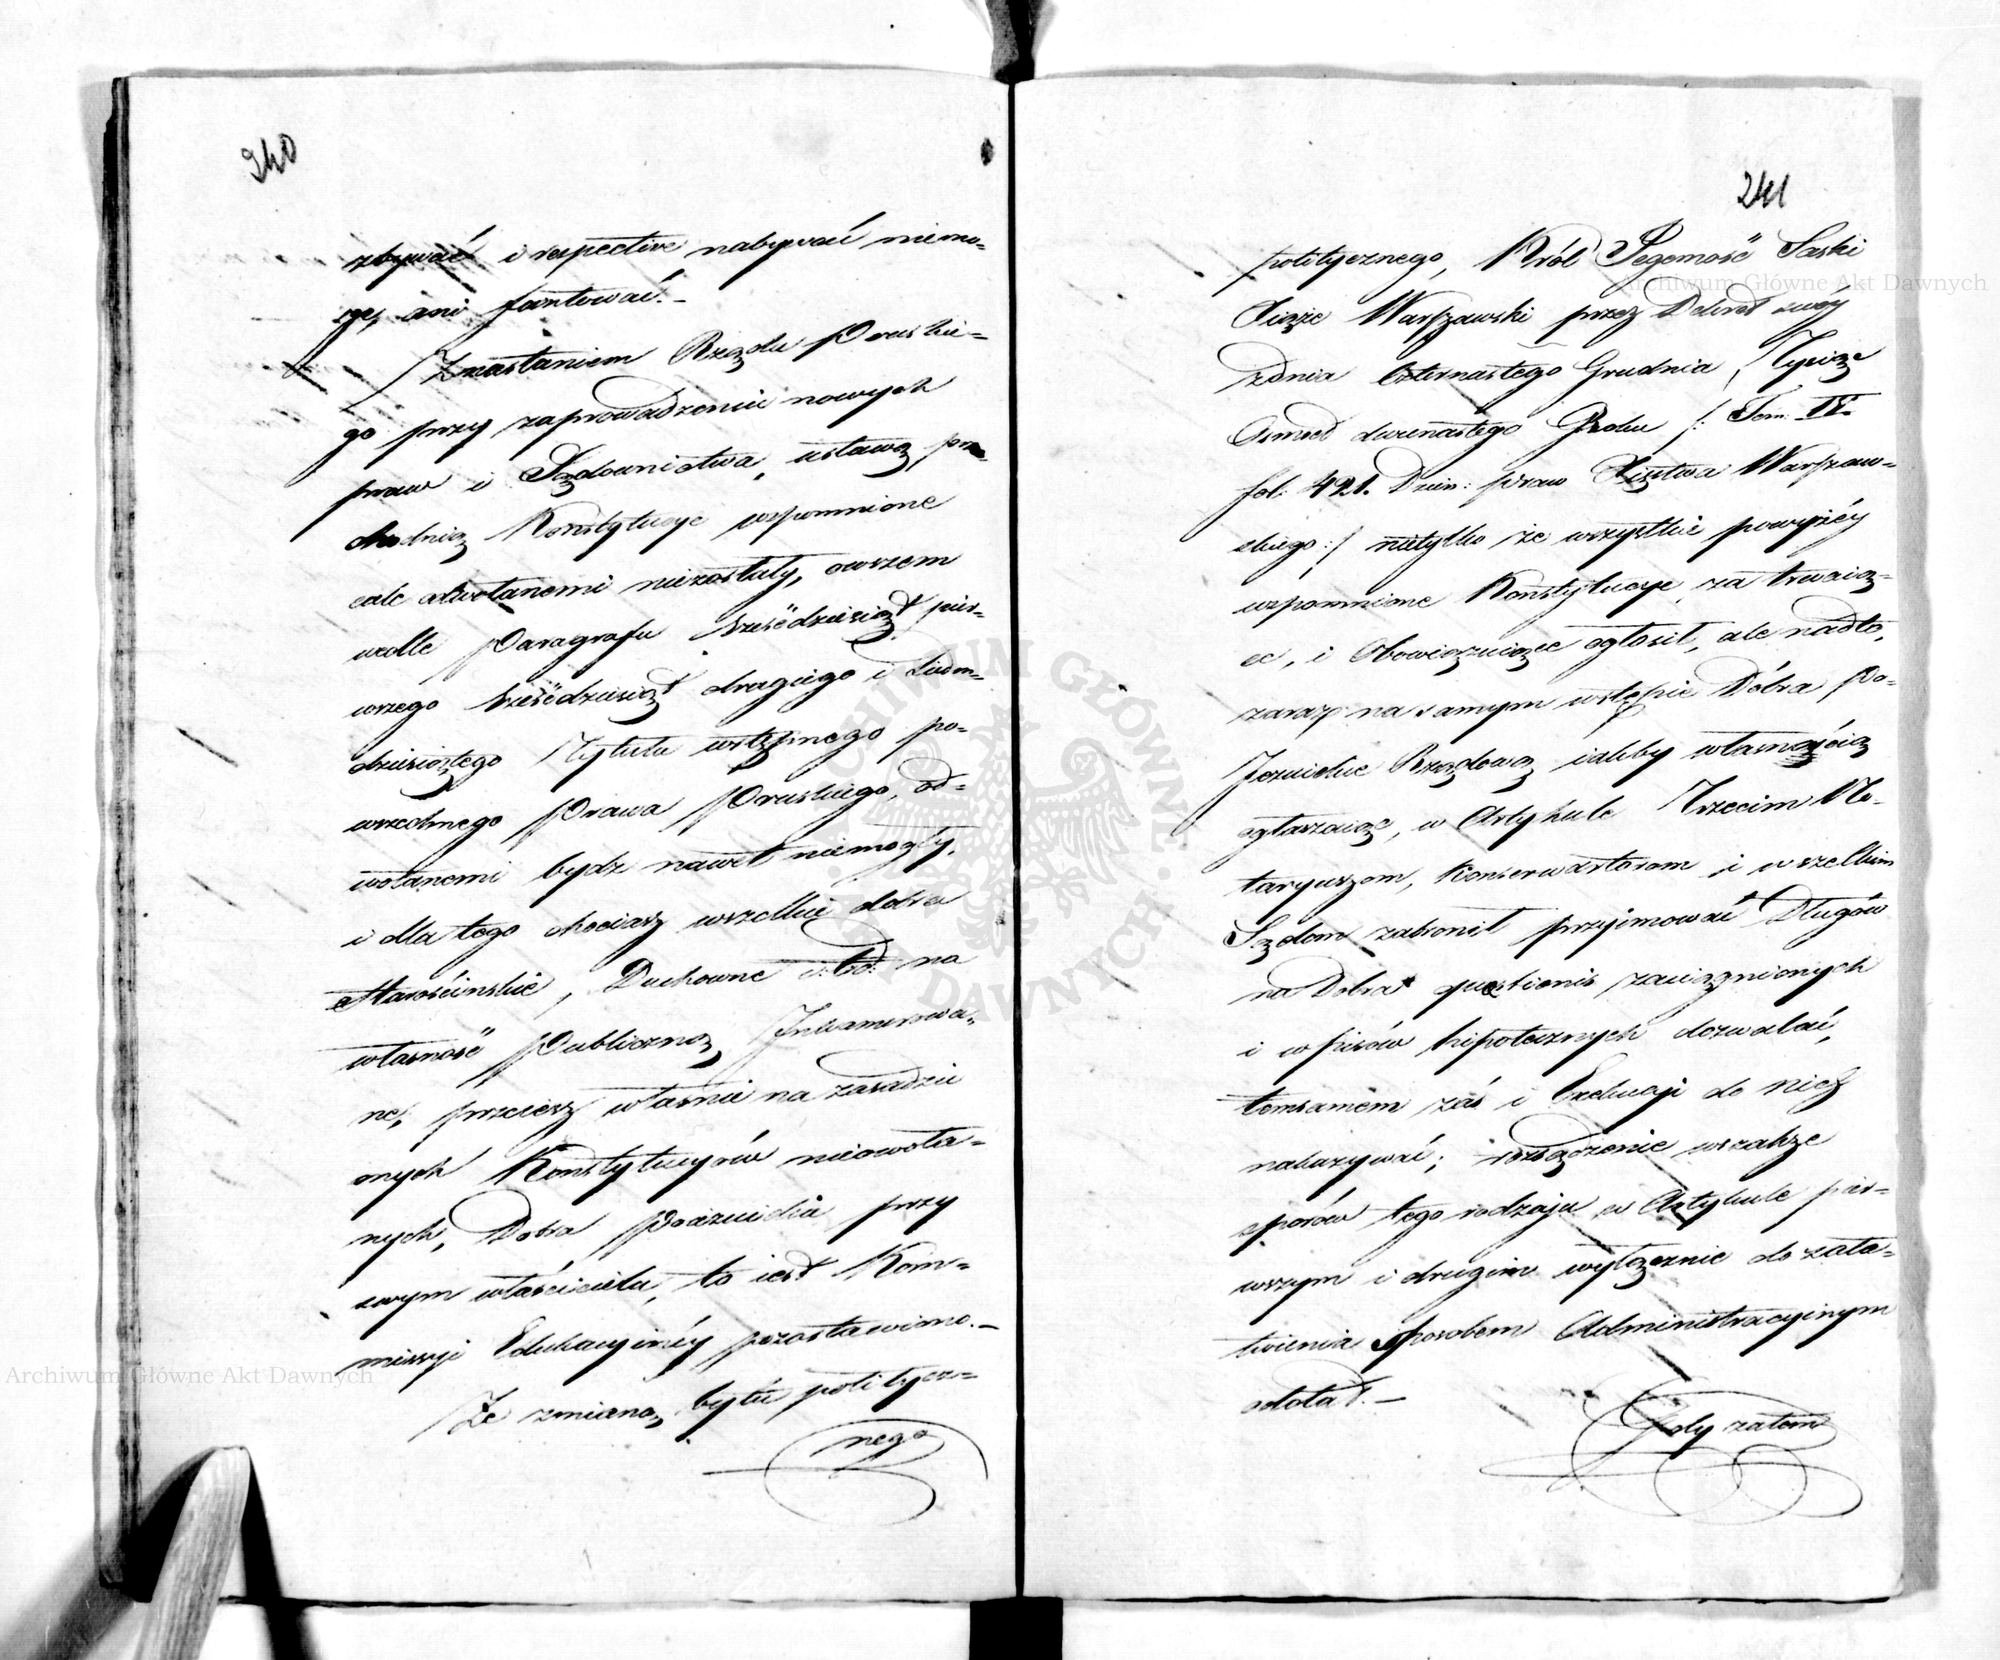 240
zbywać i respective nabywać niemo=
gę, ani fantować.—
Znastaniem Rządu Pruskie=
go przy zaprowadzeniu nowych
praw i Sądownictwa, ustawą prze=
chodnią Konstytucye wspomnione
cale odwołanemi niezostały, owszem
wedle Paragrafu sześćdziesiąt pier=
wszego sześćdziesiąt drugiego i siedm=
dziesiątego Tytułu wstępnego po=
wszechnego Prawa Pruskiego, od=
wołanemi bydz nawet niemogły,
i dla tego chociaż wszelkie dobra
Starościńskie, Duchowne i t.d. na
własność Publiczną Inkamerowa=
ne, przecież właśnie na zasadzie
onych Konstytucyów nieodwoła=
nych, Dobra Pojezuickie przy
swym właścicielu, to iest Kom=
missyi Edukacyinéy pozostawiono.—
Ze zmianą bytu politycz=
nego
241
politycznego, Król Jegomość Saski
Xiąże Warszawski przez Dekret swóy
zdnia czternastego Grudnia, Tysiąc
Osmset dwunastego Roku /: Tom IV.
fol: 421. Dzien: praw Xięstwa Warszaw=
skiego :/ nietylko że wszystkie powyżéy
wspomnione Konstytucye, za trwaią=
ce, i Obowiązuiące ogłosił, ale nadto,
zaraz na samym wstępie Dobra Po=
Jezuickie Rządową iakby własnością
ogłaszaiąc, w Artykule Trzecim No=
taryuszom, Konserwatorom i wszelkim
Sądom zabronił przyimować Długów
na Dobra questionis zaciągnionych
i wpisów hipotecznych dozwalać,
temsamem zaś i Exekucyi do nich
nakazywać; rozsądzenie wszakże
sporów tego rodzaju w Artykule pier=
wszym i drugim wyłącznie do zała=
twienia sposobem Administracyinym
odełał.—
Gdy zatem
Archiwum Główne Akt Dawnych
Archiwum Główne Akt Dawnych
ARCHIWUM GŁÓWNE AKT DAWNYCH